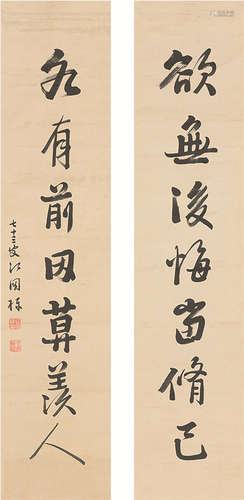 欲無後悔當脩己
各有前因莫羨人
七十三叟江國棟